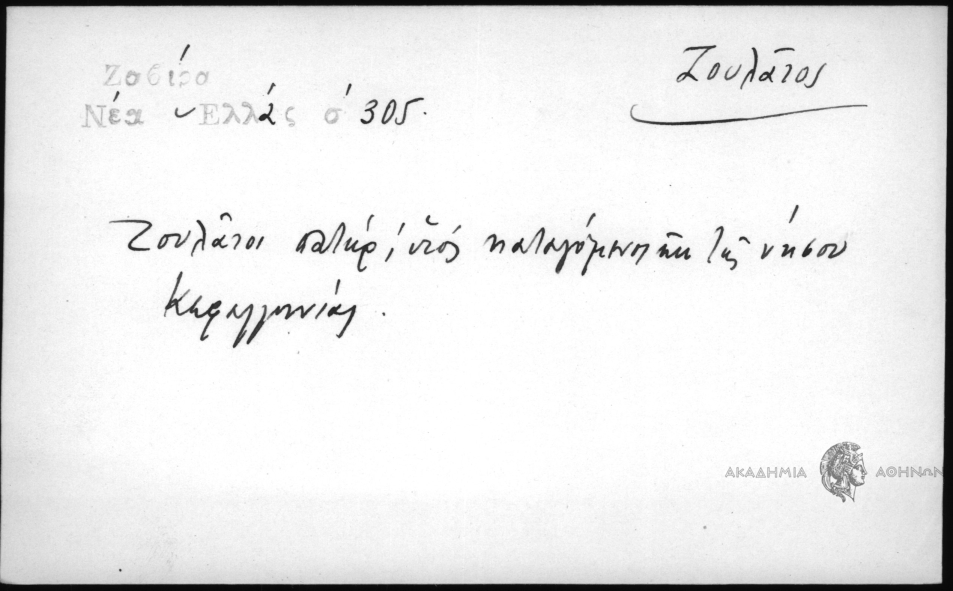 Ζαβίρα
Νέα Ἑλλάς σ 305.
Ζουλᾶτος
Ζουλᾶτοι πατήρ, υἱός καταγόμενοι ἐκ τῆς νήσου
Κεφαλληνίας.
ΑΚΑΔΗΜΙΑ ΑΘΗΝΩΝ